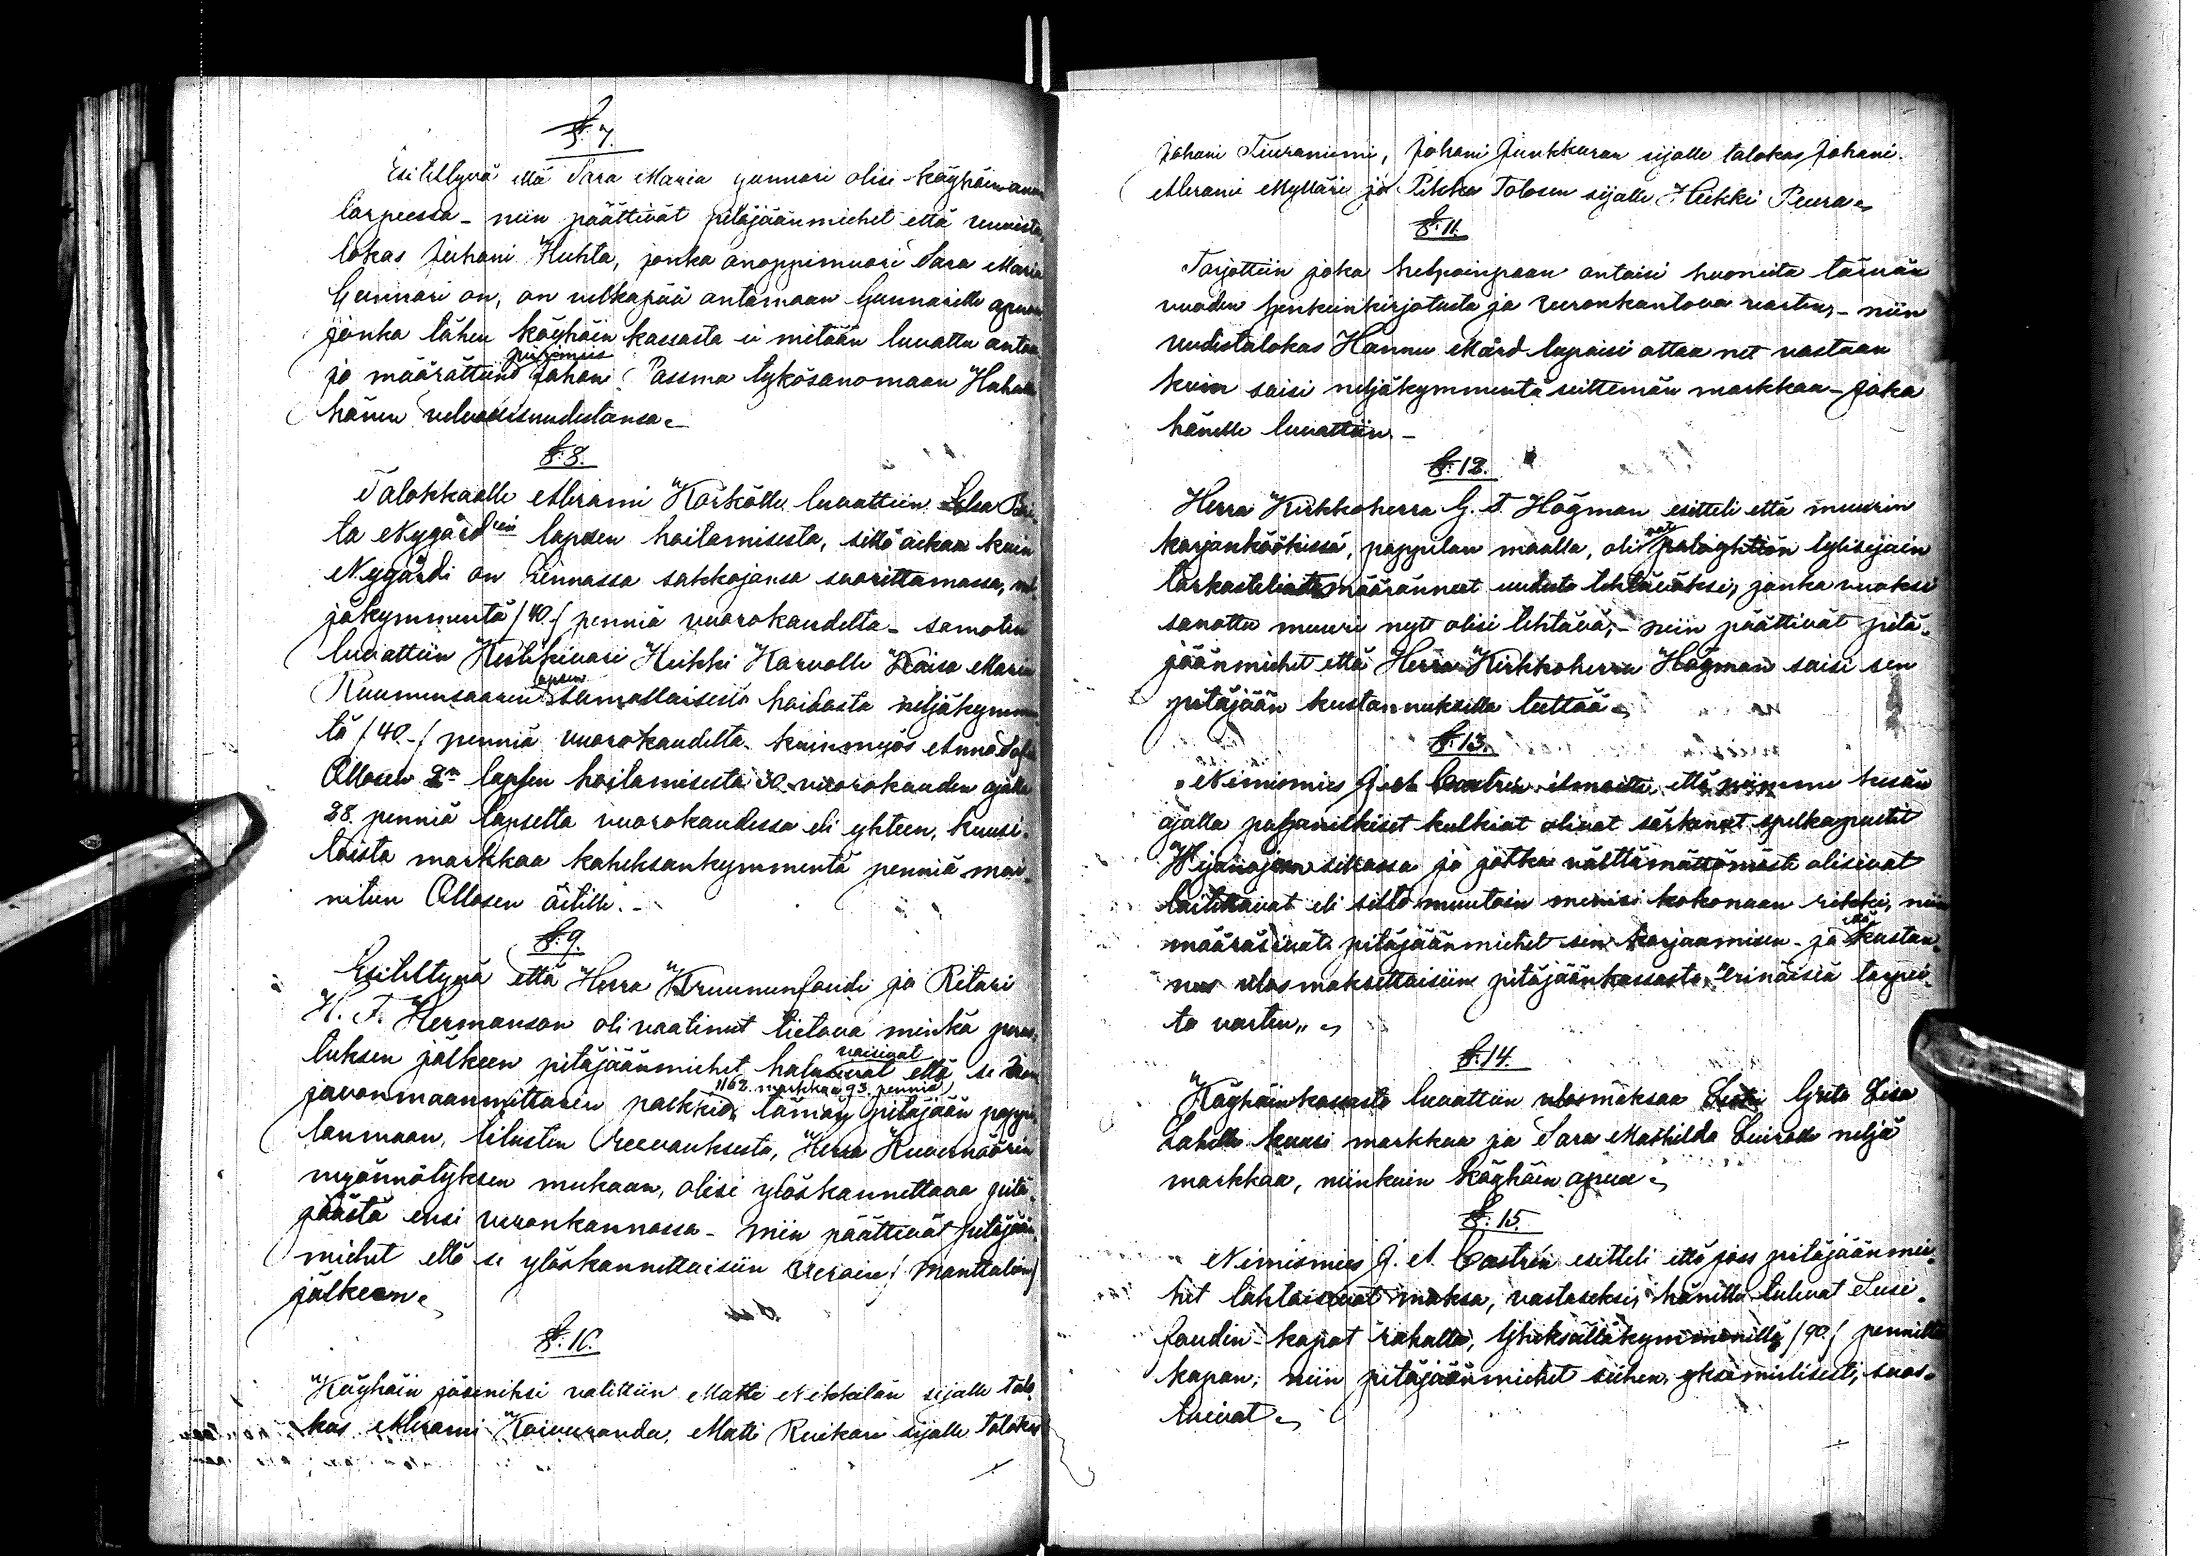 §. 7.
Esitettyä että Sara Maria Gunnari olisi köyhäinavun
tarpeessa - niin päättivät pitäjäänmiehet että uudista-
lokas Juhani Huhta, jonka anoppimuori Sara Maria
Gunnari on, on velkapää antamaan Gunnarille apua
jonka tähen köyhäin kassasta ei mitään luvattu antaa
ja määrättiin Johan Passma tykösanomaan Huhalle
hänen velvollisuudestansa.
§. 8.
Talokkaalle Abrami Körkölle luvattiin Elsa Bri-
ta Nygårdin lapsen hoitamisesta, sillä aikaa kuin
Nygårdi on linnassa sakkojansa suorittamassa, nel-
jäkymmentä /40./ penniä vuorokaudelta - samoten
luvattiin Heikki Karvolle Kaisa Maria
Kuumunsaaren lapsen samallaisesta hoidosta neljäkymmen-
tä /40.-/ penniä vuorokaudelta. kuin myös Anna Sofia
Ollosen 2n lapsen hoitamisesta 30. vuorokauden ajalla
28. penniä lapselta vuorokaudessa eli yhteen, kuusi-
toista markkaa kaheksankymmentä penniä mai-
nitun Ollosen äitille. -
§. 9.
Esitettyä että Herra Kruununfoudi ja Ritari
H. F. Hermanson oli vaatinut tietoa minkä perus-
tuksen jälkeen pitäjäänmiehet haluaisivat että se
jaonmaanmittarin palkkio 1162 markkaa 93 penniä tämän pitäjään pappi-
lanmaan, tilusten reevauksesta, Herra Kuvernöörin
myönnötyksen mukaan, olisi ylöskannettava pitä-
jäästä ensi veronkannossa - niin päättivät pitäjään-
miehet että se ylöskannettaisiin veroin / manttalin /
jälkeen.
§. 10.
Köyhäin jäseniksi valittiin Matti Nikkilän sijalle talo-
kas Abrami Koivuranda, Matti Ruikan sijalle talokas
Johani Tiuraniemi, Johani Junkkuran sijalle talokas Johani
Abrami Mylläri ja Pekka Tolosen sijalle Heikki Peura.
§. 11.
Tarjottiin joka helpoinpaan antaisi huoneita tämän
vuoden henkeinkirjotusta ja veronkantoa varten, - niin
uudistalokas Hannu Mård lupaisi ottaa net vastaan
kuin saisi neljäkymmentä seittemän markkaa - joka
hänelle luvattiin. -
§. 12.
Herra Kirkkoherra G. T. Högman esitteli että muurin
karjanköökissä, pappilan maalla, olivat paloyhtiön tylisijain
tarkasteliat määränneet uudesta tehtäväksi, jonka vuoksi
sanottu muuri nyt olisi tehtävä, - niin päättivät pitä-
jäänmiehet että Herra Kirkkoherra Högman saisi sen
pitäjään kustannuksilla teettää.
§. 13.
Nimismies J. A. Castrén ilmoitti, että viimme kesän
ajalla pahanilkiset kulkiat olivat särkenet spelkapuitit
Wijanajoen sillassa ja jotka välttämättömäste olisivat
laitettavat eli silta muutoin menisi kokonaan rikki, niin
määräsivät pitäjäänmiehet sen korjaamisen - ja että kustan-
nus ulosmaksettaisiin pitäjäänkassasta "erinäisiä tarpei-
ta varten".
§. 14.
Köyhäinkassasta luvattiin ulosmaksaa Greta Lisa
Lahelle kuusi markkaa ja Sara Mathilda Leiralle neljä
markkaa, niinkuin köyhäin apua.
§. 15.
Nimismies J. A. Castrén esitteli että joss pitäjäänmie-
het tahtoisivat maksa, vastaseksi, hänelle tulevat Susi-
foudin kapat rahalla, Yheksälläkymmenillä /90./ pennillä
kapan; niin pitäjäänmiehet siihen, yksimielisesti, suos-
tuivat.